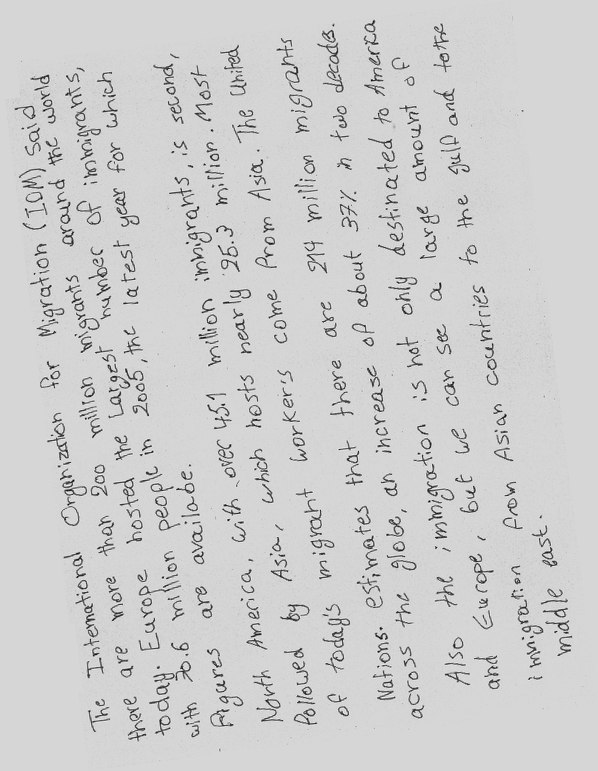 The International Organization for Migration (IOM) said
there are more than 200 million migrants around the world
today. Europe hosted the Largest number of immigrants,
with 70.6 million people in 2005, the latest year for which
figures are availabe.
North America, with over 45.1 million immigrants, is second,
followed by Asia, which hosts nearly 25.3 million. Most
of today's migrant workers come from Asia. The United
Nations. estimates that there are 214 million migrants
across the globe, an increase of about 37% in two decades.
Also the immigration is not only destinated to America
and Europe, but we can see a large amount of
immigration from Asian countries to the gulf and to the
middle east.